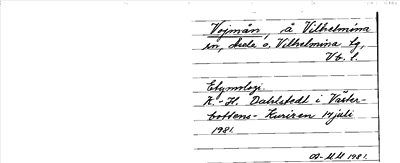 Vojmån, å Vilhelmina
sn, Åsele o. Vilhelmina tg,
Vb. l.
Etymologi.
K.-H. Dahlstedt i Väster-
bottens-Kuriren 14 juli
1981.
1981.